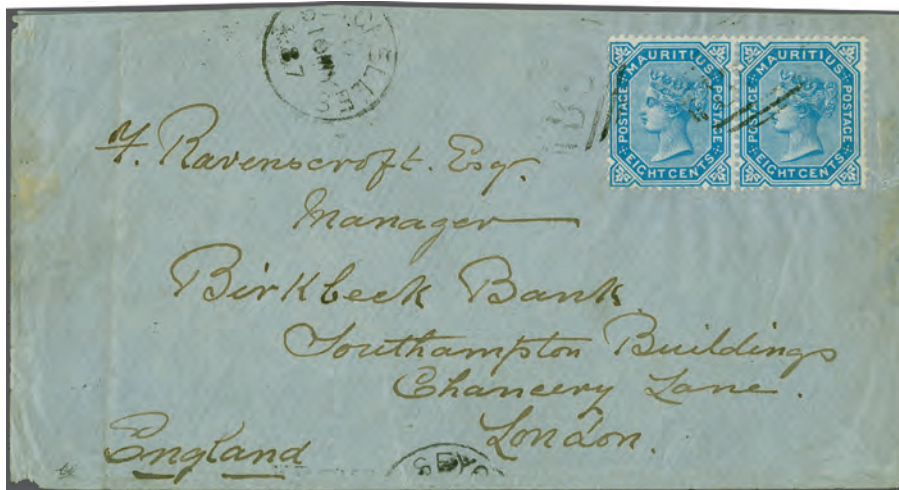 SEYCHELLES
87
B
MAURITIUS
POSTAGE
POSTAGE
EIGHT CENTS
MAURITIUS
POSTAGE
POSTAGE
EIGHT CENTS
F. Ravenscroft. Esq.
Manager
Birkbeck Bank
Southampton Buildings
Chancery Lane.
London.
England